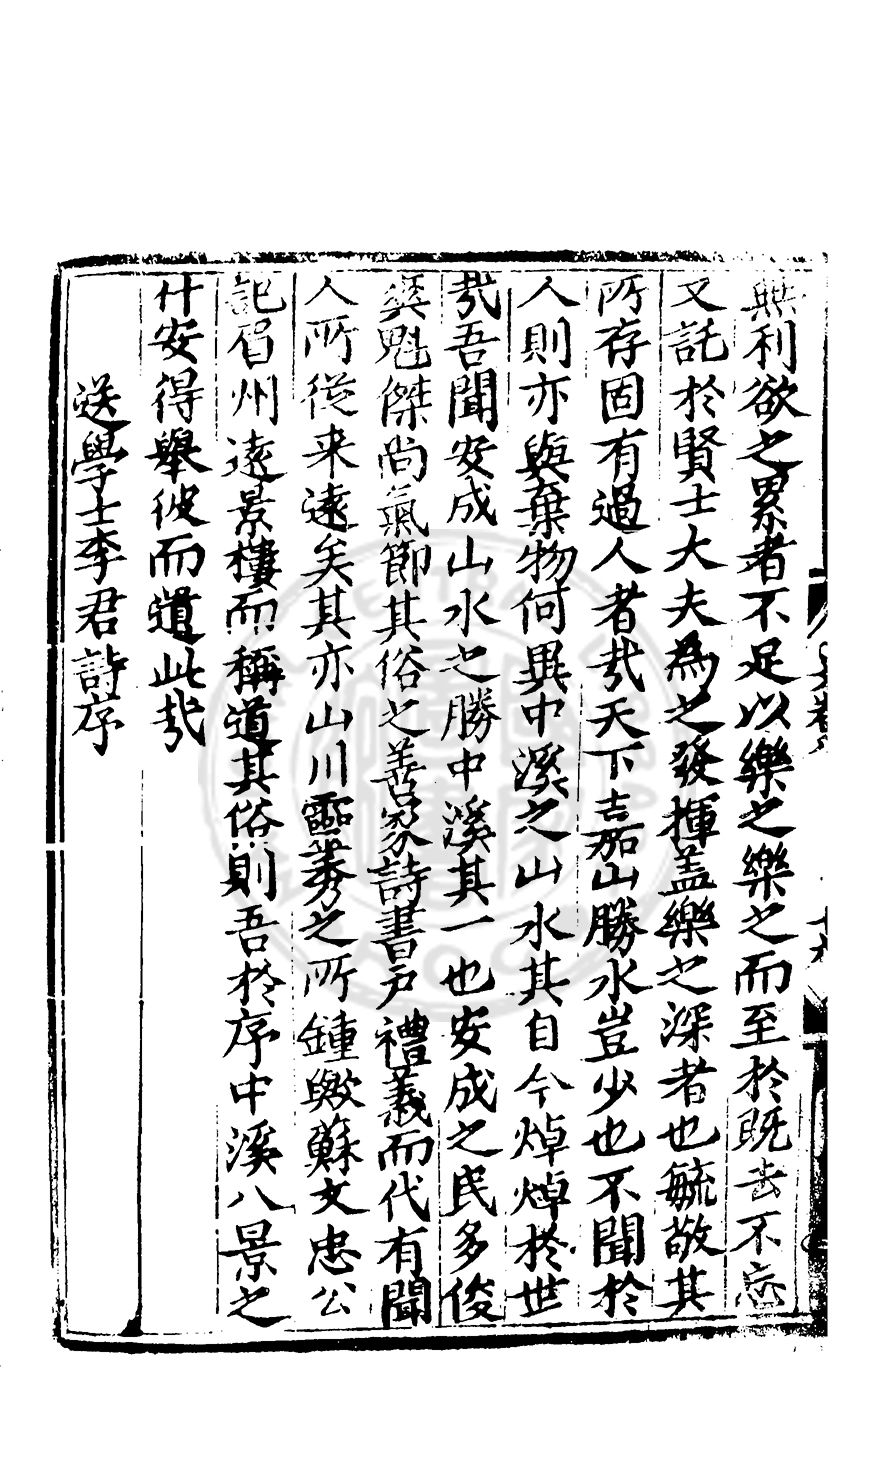 無利欲之累者不足以樂之樂之而至於既去不忘
又託於賢士大夫為之發揮盖樂之深者也毓敬其
所存固有過人者㢤天下嘉山勝水豈少也不聞於
人則亦與棄物何異中溪之山水其自今焯焯於世
㢤吾聞安成山水之勝中溪其一也安成之民多俊
異魁傑尚氣節其俗之善家詩書戶禮義而代有聞
人所從来遠矣其亦山川靈秀之所鍾歟蘇文忠公
記眉州遠景樓而稱道其俗則吾於序中溪八景之
什安得舉彼而遺此㢤
送學士李君詩序